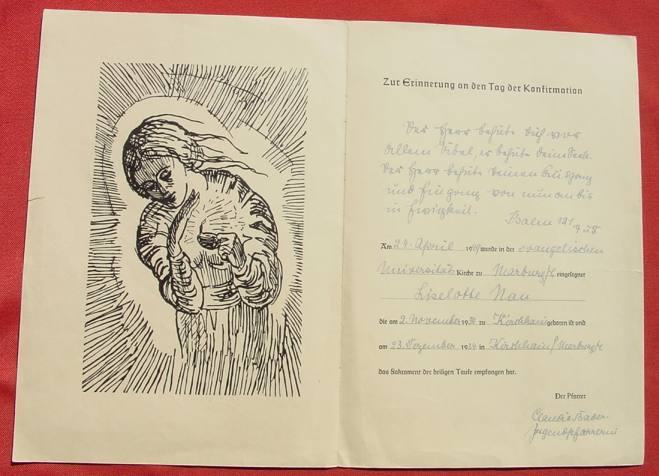 Zur Erinnerung an den Tag der Konfirmation
Der Herr behüte dich vor
allem Übel, er behüte deine Seele.
Der Herr behüte deinen Ausgang
und Eingang von nun an bis
in Ewigkeit.
Psalm 121
Am 24. April wurde in der evangelischen
Universitäts Kirche zu Marburg eingesegnet
Liselotte Nau
die am 2. November 19 zu Kirchhain geboren ist und
am 23. Dezember 19 in Kirchhain/Marburg
das Sakrament der heiligen Taufe empfangen hat.
Der Pfarrer
Claudia Bader
Jugendpfarrerin